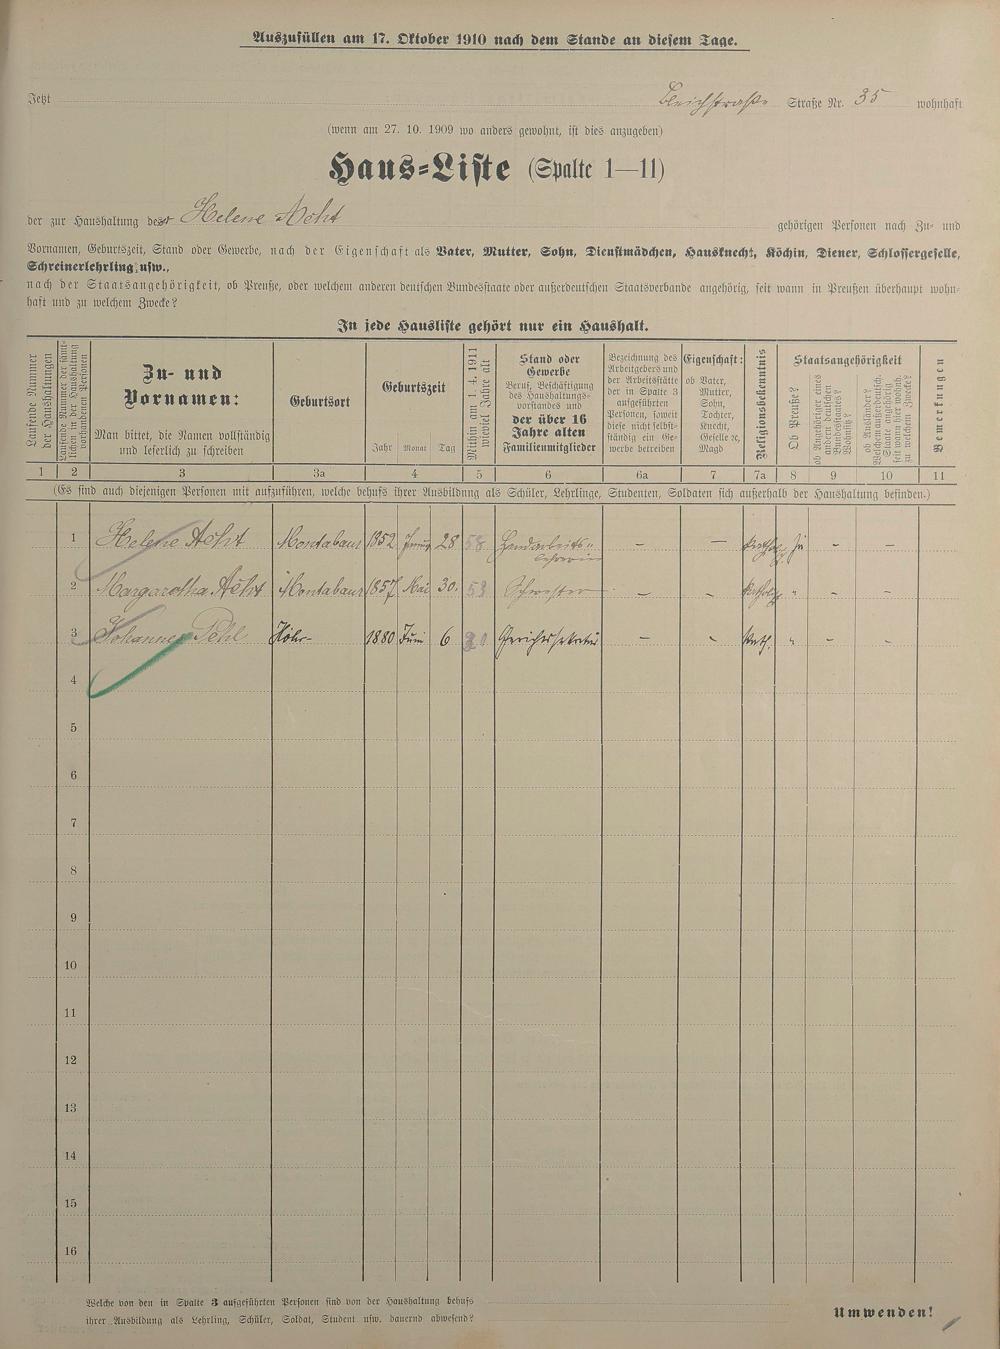 Auszufüllen am 17. Oktober 1910 nach dem Stande an diesem Tage.
Jetzt Bleichstraße Straße Nr. 35 wohnhaft
(wenn am 27. 10. 1909 wo anders gewohnt, ist dies anzugeben)
Haus-Liste (Spalte 1—11)
der zur Haushaltung der Helene Acht gehörigen Personen nach Zu- und
Vornamen, Geburtszeit, Stand oder Gewerbe, nach der Eigenschaft als Vater, Mutter, Sohn, Dienstmädchen, Hausknecht, Köchin, Diener, Schlossergeselle,
Schreinerlehrling usw.,
nach der Staatsangehörigkeit, ob Preuße, oder welchem anderen deutschen Bundesstaate oder außerdeutschen Staatsverbande angehörig, seit wann in Preußen überhaupt wohn-
haft und zu welchem Zwecke?
In jede Hausliste gehört nur ein Haushalt.
Laufende Nummer der Haushaltungen
Laufende Nummer der sämt-
lichen in der Haushaltung
vorhandenen Personen
Zu- und
Vornamen:
Man bittet, die Namen vollständig
und leserlich zu schreiben
Geburtsort
Geburtszeit
Jahr Monat Tag
Mithin am 1. 4. 1911
wieviel Jahre alt
Stand oder
Gewerbe
Beruf, Beschäftigung
des Haushaltungs-
vorstandes und
der über 16
Jahre alten
Familienmitglieder
Bezeichnung des
Arbeitgebers und
der Arbeitsstätte
der in Spalte 3
aufgeführten
Personen, soweit
diese nicht selbst-
ständig ein Ge-
werbe betreiben
Eigenschaft:
ob Vater,
Mutter,
Sohn,
Tochter,
Knecht,
Geselle ec,
Magd
Religionsbekenntnis
Staatsangehörigkeit
Ob Preuße?
ob Angehöriger eines
andern deutschen
Bundesstaates?
Wohnitz?
ob Ausländer?
Welchem außerdeutsch.
Staate angehörig
seit wann hier wohnh.
zu welchem Zwecke?
Bemerkungen
1 2 3 3a 4 5 6 6a 7 7a 8 9 10 11
(Es sind auch diejenigen Personen mit aufzuführen, welche behufs ihrer Ausbildung als Schüler, Lehrlinge, Studenten, Soldaten sich außerhalb der Haushaltung befinden.)
1 Helene Acht Montabaur 1852 28 58 Handarbeits- — — kathol. ja — —
lehrerin
2 Margaretha Acht Montabaur 1857 Mai 30. 53 Schwester — - kathol. " — —
3 Johannes Pehl Höhr- 1880 Juni 6 30 Gerichtssekretär — - kath. " — —
4
5
6
7
8
9
10
11
12
13
14
15
16
Welche von den in Spalte 3 aufgeführten Personen sind von der Haushaltung behufs
ihrer Ausbildung als Lehrling, Schüler, Soldat, Student usw. dauernd abwesend?
Umwenden!